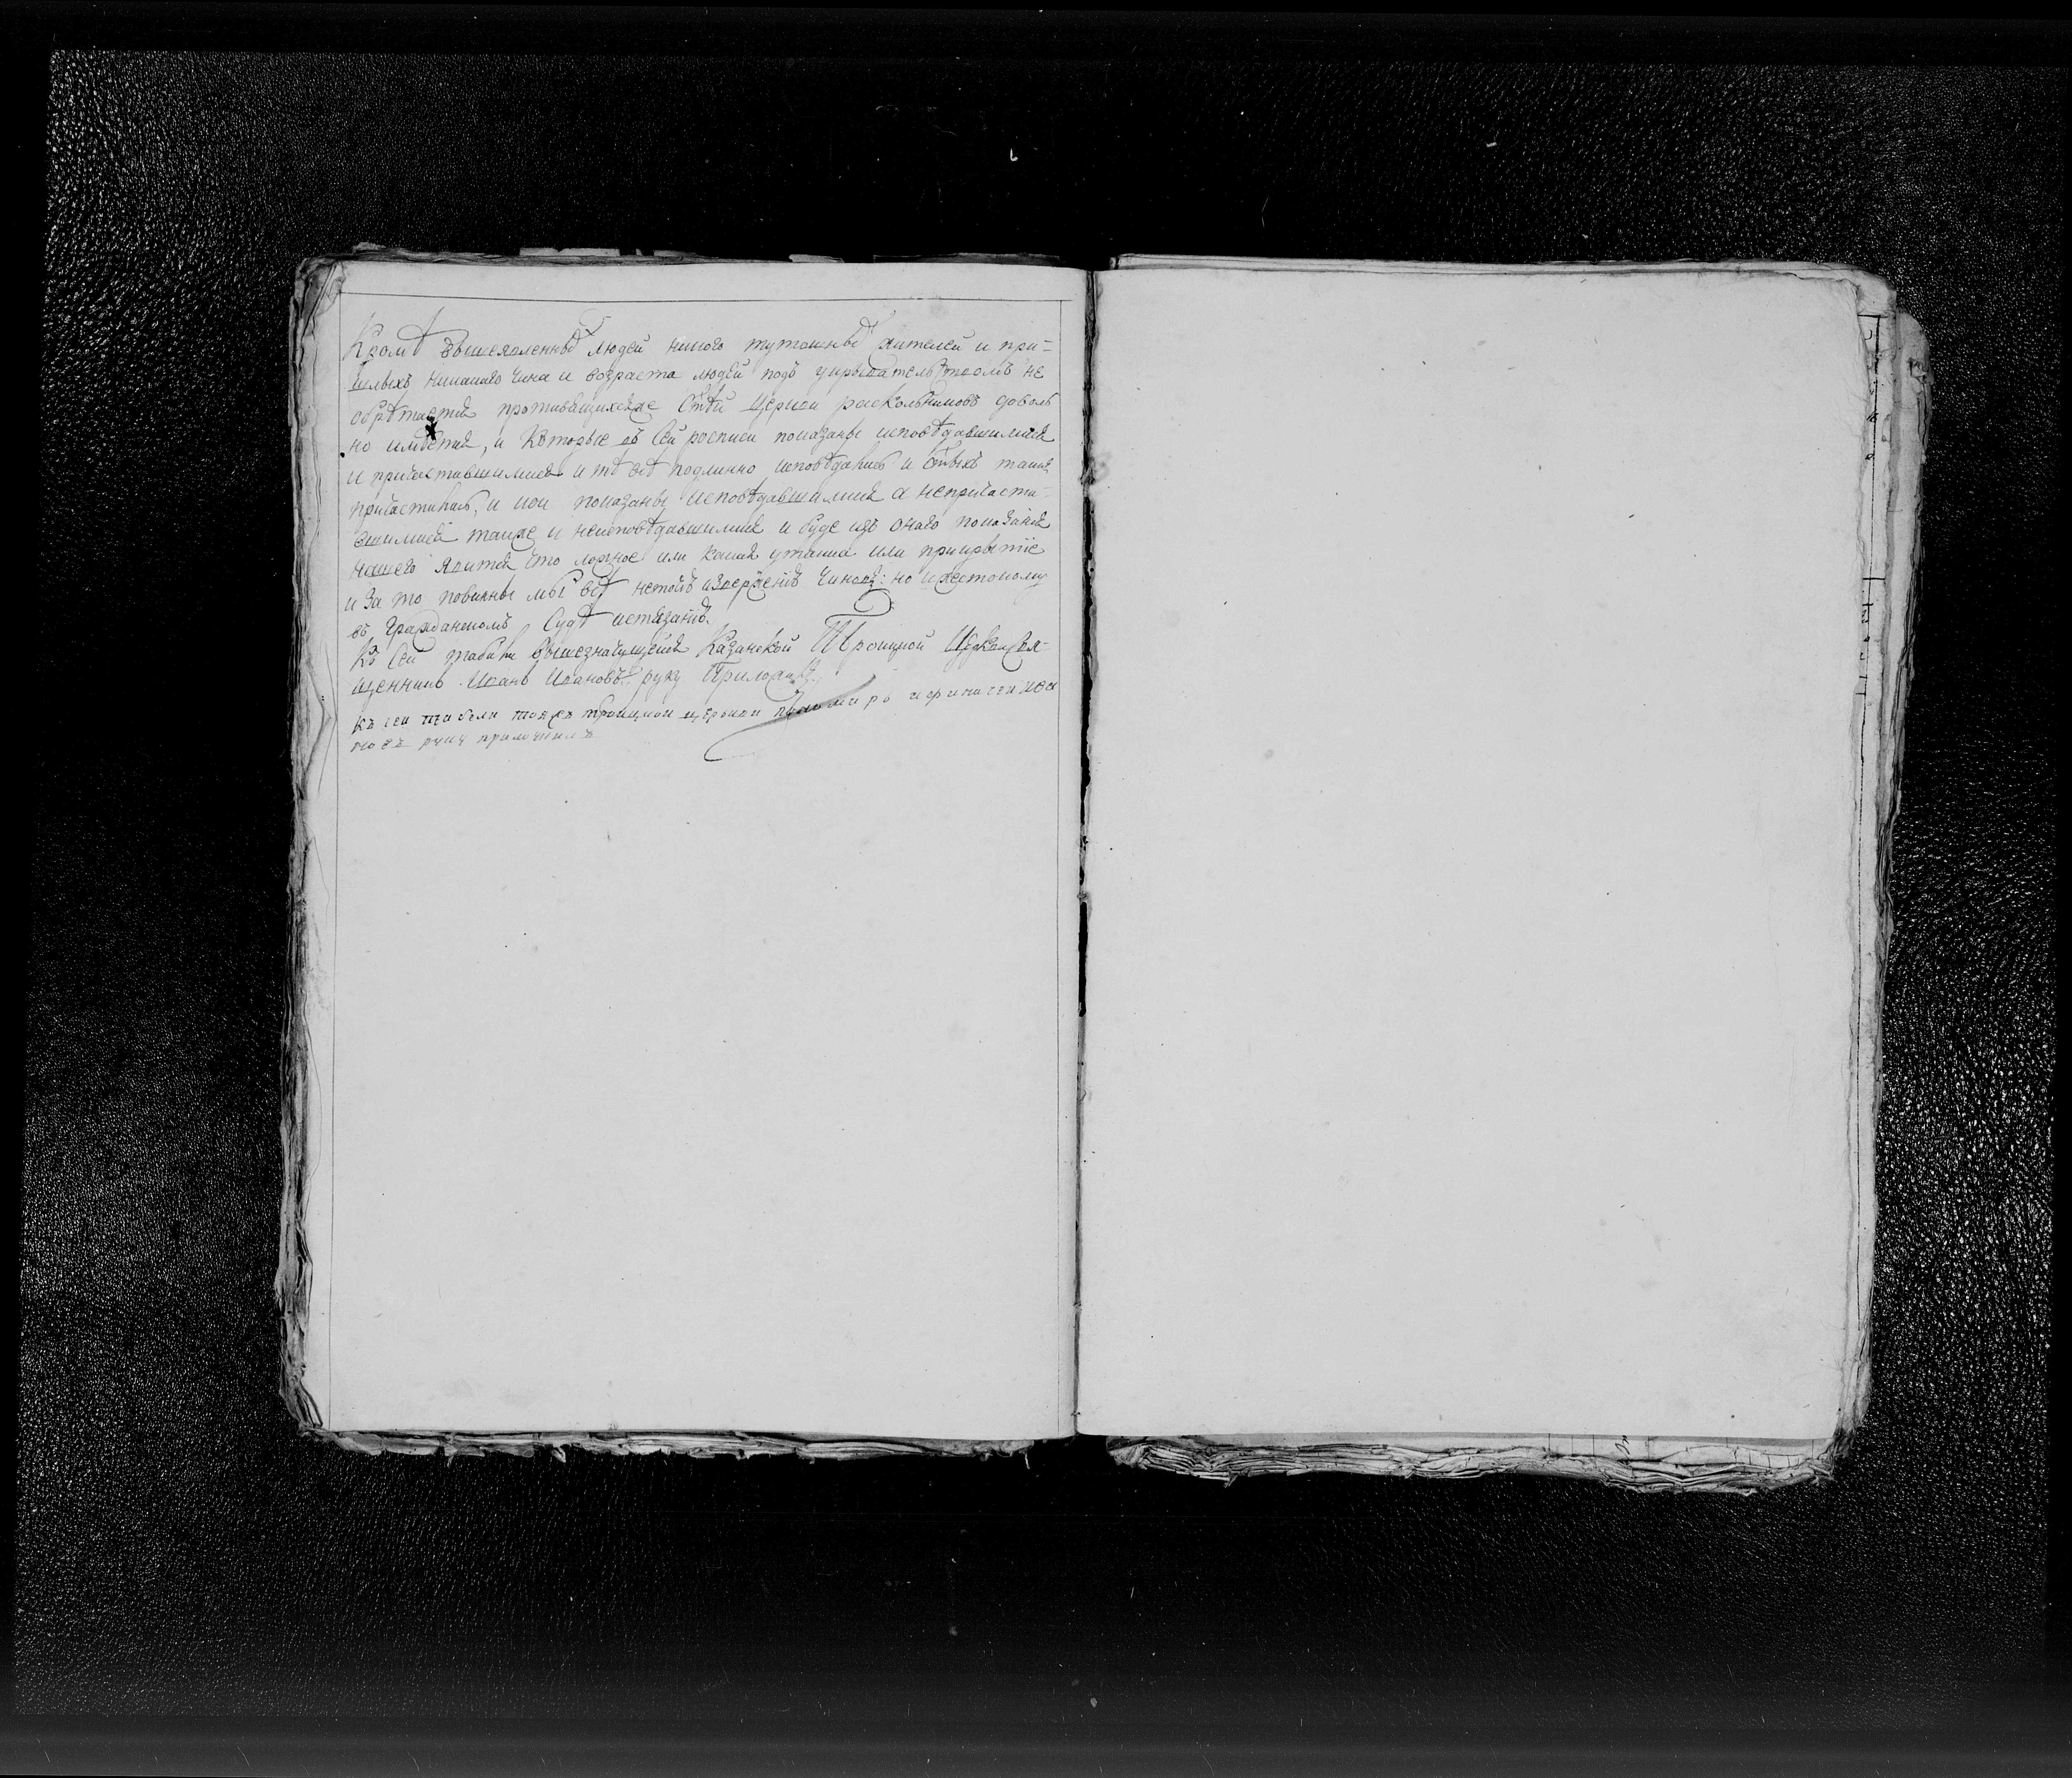 Кромѣ вышеявленныхъ людей никого тутошныхъ жителей и при-
шлыхъ никакаго чина и возраста людей подъ укрывательствомъ не
обрѣтается противящихсяже Стѣй Церкви раскольниковъ доволь
но имѣется, и которые въ сей росписи показаны исповѣдавшимися
и причастившимися и тѣ всѣ подлинно исповѣдались и Стыхъ таинъ
причастились, и кои показаны исповѣдавшимися а непричасти-
вшимися также и неисповѣдавшимися и буде изъ онаго показания
нашего явится что ложное или какая утайка или прикрытіе
и за то повинны мы всѣ нетокмъ извержению чиновъ: но и жестокому
въ гражданскомъ судѣ истязанию.
Къ сей табели вышезначущейся Казанской Троицкой Церкви свя-
щенникъ Иванъ Ивановъ руку приложилъ.
къ сеи табели тоеже троицкои церкви
руку приложилъ